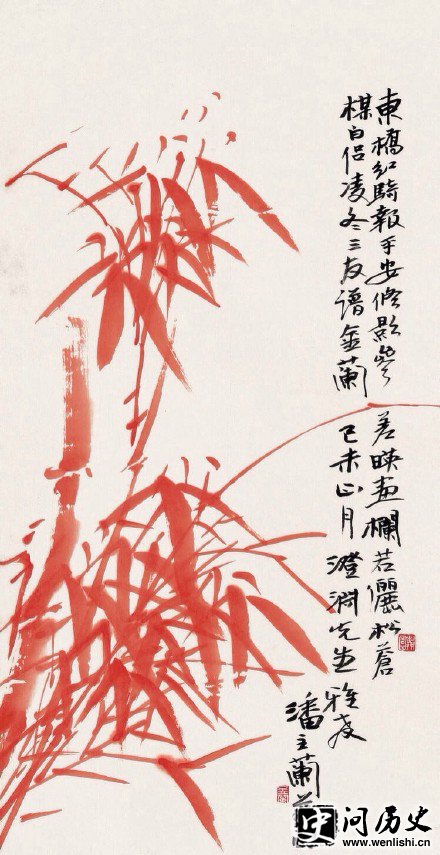 東橋紅報平安修影參差映畫欄若儷松蒼
楳白侶凌冬三友譜金蘭 己未正月 澄先生雅教
潘主蘭
史问历史
www.wenlishi.cn